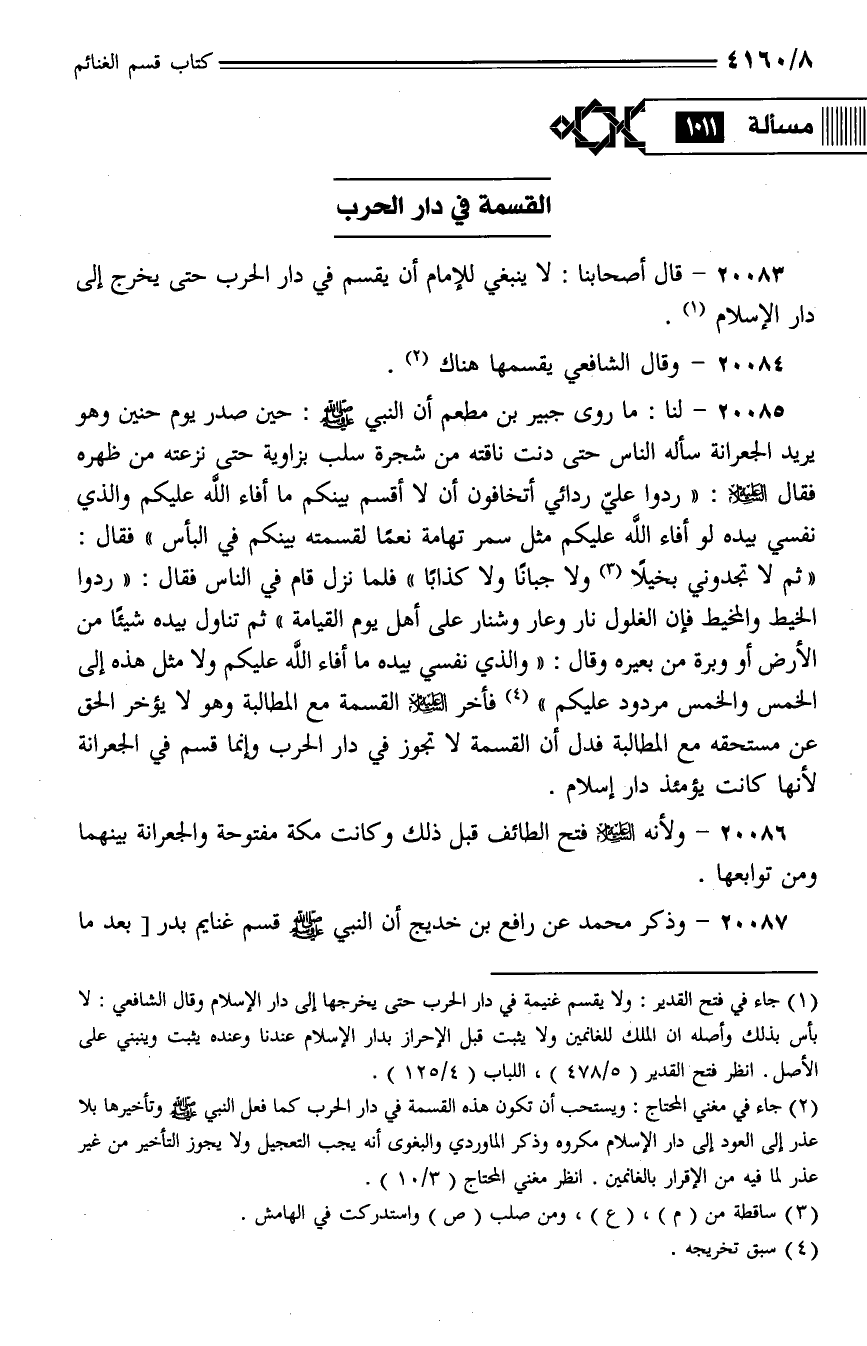 ٤١٦٠/٨ كتاب قسم الغنائم
مسألة ١٠١١
القسمة في دار الحرب
٢٠٠٨٣ - قال أصحابنا : لا ينبغي للإمام أن يقسم في دار الحرب حتى يخرج إلى
دار الإسلام (١) .
٢٠٠٨٤ - وقال الشافعي يقسمها هناك (٢) .
٢٠٠٨٥ - لنا : ما روى جبير بن مطعم أن النبي ﷺ : حين صدر يوم حنين وهو
يريد الجعرانة سأله الناس حتى دنت ناقته من شجرة سلب بزاوية حتى نزعته من ظهره
فقال عليه السلام : « ردوا عليّ ردائي أتخافون أن لا أقسم بينكم ما أفاء اللَّه عليكم والذي
نفسي بيده لو أفاء اللَّه عليكم مثل سمر تهامة نعمًا لقسمته بينكم في البأس » فقال :
« ثم لا تجدوني بخيلًا (٣) ولا جبانًا ولا كذابًا » فلما نزل قام في الناس فقال : « ردوا
الخيط والمخيط فإن الغلول نار وعار وشنار على أهل يوم القيامة » ثم تناول بيده شيئًا من
الأرض أو وبرة من بعيره وقال : « والذي نفسي بيده ما أفاء اللَّه عليكم ولا مثل هذه إلى
الخمس والخمس مردود عليكم » (٤) فأخر عليه السلام القسمة مع المطالبة وهو لا يؤخر الحق
عن مستحقه مع المطالبة فدل أن القسمة لا تجوز في دار الحرب وإنما قسم في الجعرانة
لأنها كانت يؤمئذ دار إسلام .
٢٠٠٨٦ - ولأنه عليه السلام فتح الطائف قبل ذلك وكانت مكة مفتوحة والجعرانة بينهما
ومن توابعها .
٢٠٠٨٧ - وذكر محمد عن رافع بن خديج أن النبي ﷺ قسم غنايم بدر [ بعد ما
(١) جاء في فتح القدير : ولا يقسم غنيمة في دار الحرب حتى يخرجها إلى دار الإسلام وقال الشافعي : لا
بأس بذلك وأصله ان الملك للغانمين ولا يثبت قبل الإحراز بدار الإسلام عندنا وعنده يثبت وينبني على
الأصل . انظر فتح القدير ( ٤٧٨/٥ ) ، اللباب ( ١٢٥/٤ ) .
(٢) جاء في مغني المحتاج : ويستحب أن تكون هذه القسمة في دار الحرب كما فعل النبي ﷺ وتأخيرها بلا
عذر إلى العود إلى دار الإسلام مكروه وذكر الماوردي والبغوى أنه يجب التعجيل ولا يجوز التأخير من غير
عذر لما فيه من الإقرار بالغانمين . انظر مغني المحتاج ( ١٠/٣ ) .
(٣) ساقطة من ( م ) ، ( ع ) ، ومن صلب ( ص ) واستدركت في الهامش .
(٤) سبق تخريجه .